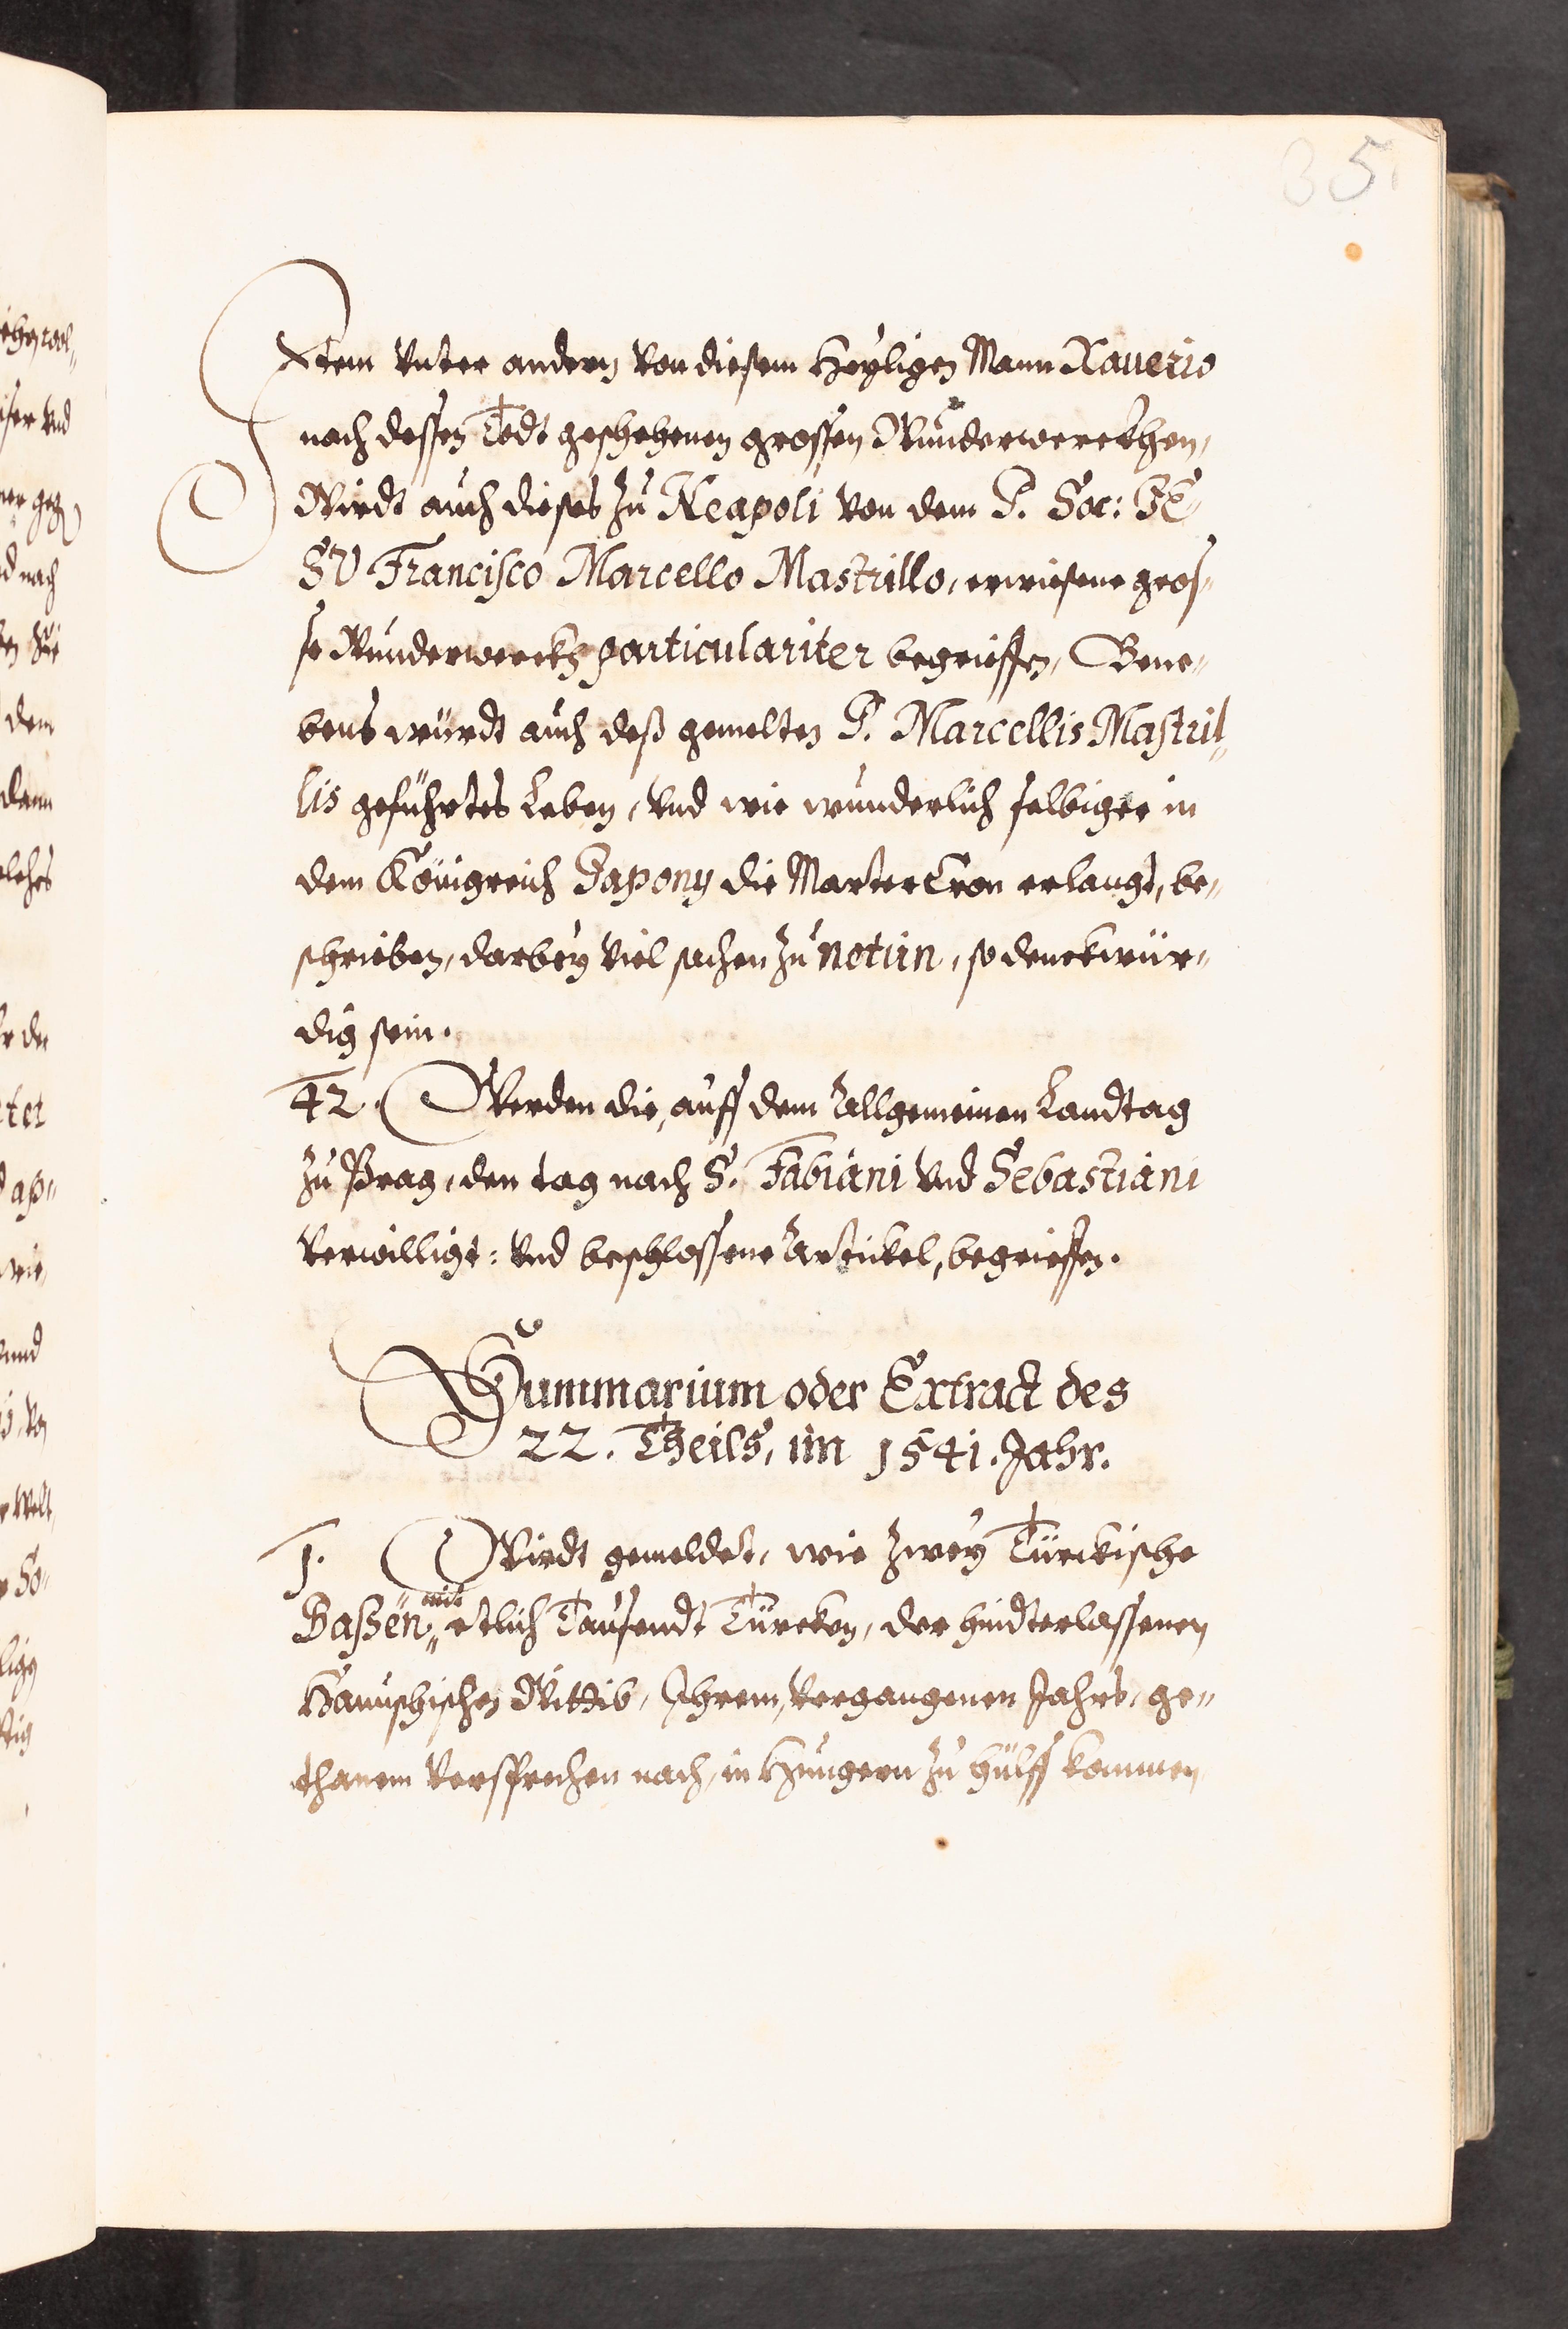 35
Item vnter andern von diesem Heyligen Mann Xauerio
nach dessen Todt geschehenen grossen Wunderwerckhen,
Wirdt auch dieses zu Neapoli von dem P. Soc: JE¬
SV Francisco Marcello Mastrillo, erwiesene gros¬
se Wunderwerckh particulariter begrieffen, Bene¬
bens würdt auch deß gemelten P. Marcellis Mastril¬
lis geführtes Leben, vnd wie wunderlich selbiger in
dem Königreich Japony die Marter Cron erlangt, be¬
schrieben, darbey viel sachen zu notirn, so denckwür¬
dig sein.
42. Werden die, auff dem Allgemeinen Landtag
zu Prag, den tag nach S. Fabiani vnd Sebastiani
verwilligt: vnd beschlossene Artickel, begrieffen.
Summarium oder Extract des
22. Theils, im 1541. Jahr.
1. Wirdt gemeldet, wie zwey Türckische
Baßen, mit etlich Tausendt Türcken, der hindterlassenen
Hanuschischen Wittib, Ihrem, vergangenen Jahrs, ge¬
thanem Versprechen nach, in Hungern zu hülff kommen